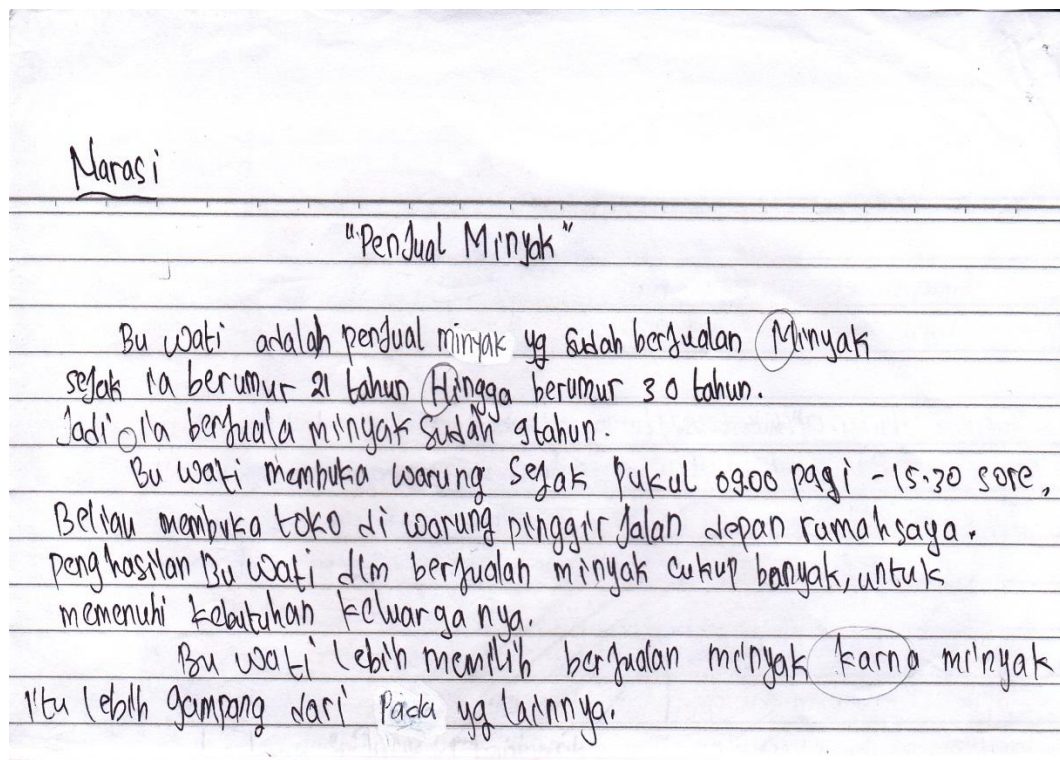 Narasi
"Penjual Minyak"
Bu Wati adalah penjual minyak yg sudah berjualan Minyak
sejak ia berumur 21 tahun Hingga berumur 30 tahun.
Jadi ia berjuala minyak sudah 9tahun.
Bu Wati membuka warung sejak Pukul 09.00 pagi - 15.30 sore,
Beliau membuka toko di warung pinggir Jalan depan rumah saya.
penghasilan Bu Wati dlm berjualan minyak cukup banyak, untuk
memenuhi kebutuhan keluarga nya.
Bu Wati lebih memilih berjualan minyak karna minyak
itu lebih gampang dari Pada yg lainnya.